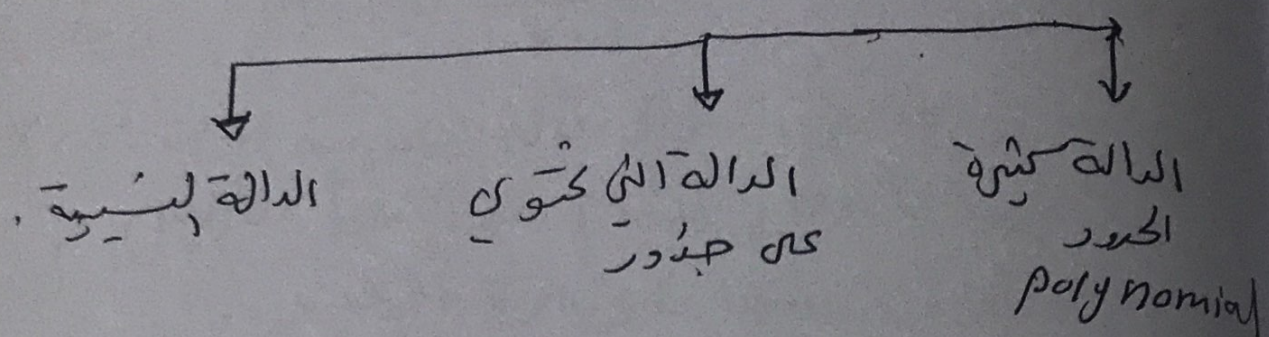 الدالة كثيرة
الحدود
polynomial
الدالة التي تحتوي
على جذور
الدالة النسبية.